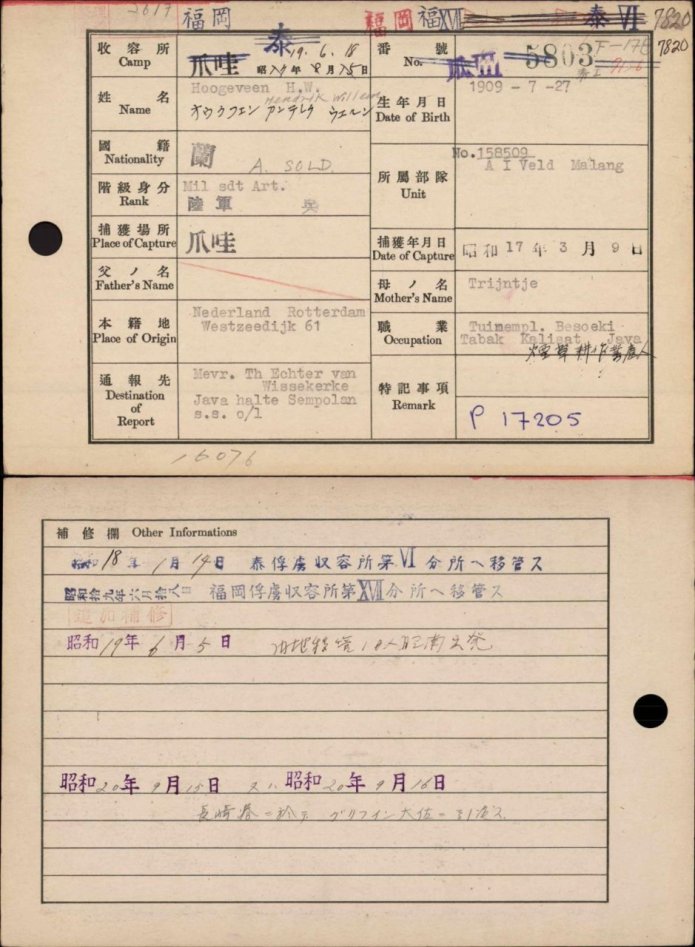 2617 福岡 福岡 福XVII 泰VI 7820
収容所 Camp 爪哇 泰 19.6.18
昭和17年8月15日
番號 No. 爪 5803 F-17E 7820
姓名 Name Hoogeveen H.W.
Hendrik Willem
生年月日 Date of Birth 1909-7-27
國籍 Nationality 蘭
A. SOLD.
所屬部隊 Unit No.158509
A I Veld Malang
階級身分 Rank Mil sdt Art.
陸軍 兵
捕獲場所 Place of Capture 爪哇
捕獲年月日 Date of Capture 昭和17年3月9日
父ノ名 Father's Name
母ノ名 Mother's Name Trijntje
本籍地 Place of Origin Nederland Rotterdam
Westzeedijk 61
職業 Occupation Tuinempl. Besoeki
Tabak Kalisat Java
煙草耕作
通報先 Destination of Report Mevr. Th Echter van
Wissekerke
Java halte Sempolan
s.s. o/l
特記事項 Remark P 17205
16076
補修欄 Other Informations
昭和18年1月14日 泰俘虜収容所第VI分所へ移管ス
昭和拾九年六月拾八日 福岡俘虜収容所第XVII分所へ移管ス
追加補修
昭和19年6月5日 昭南出発
昭和20年9月15日 又ハ 昭和20年9月16日
長崎港ニ於テ グリフイン大佐ニ引渡ス